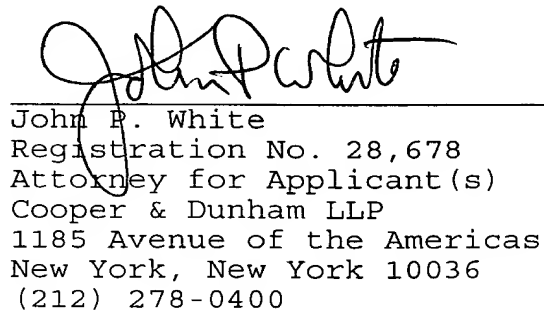 John P White
John P. White
Registration No. 28,678
Attorney for Applicant(s)
Cooper & Dunham LLP
1185 Avenue of the Americas
New York, New York 10036
(212) 278-0400